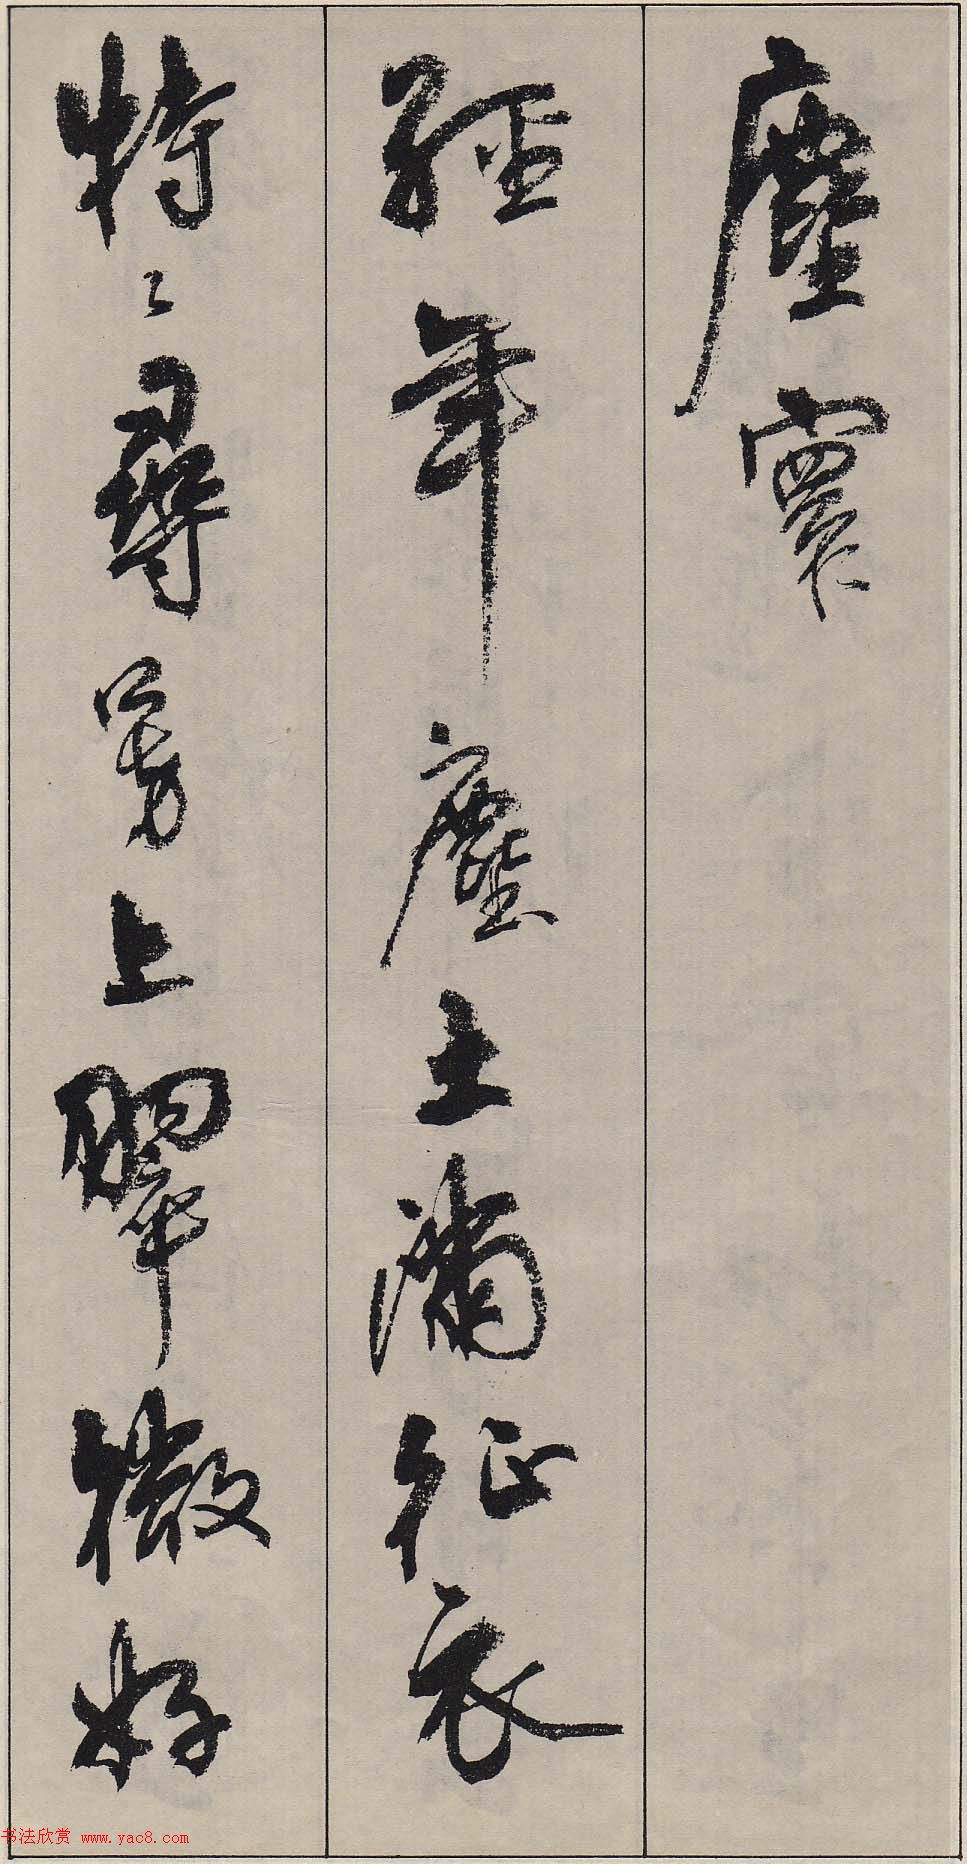 塵寰
經年塵土滿征衣
特〻尋芳上翠微好
书法欣赏 www.yac8.com